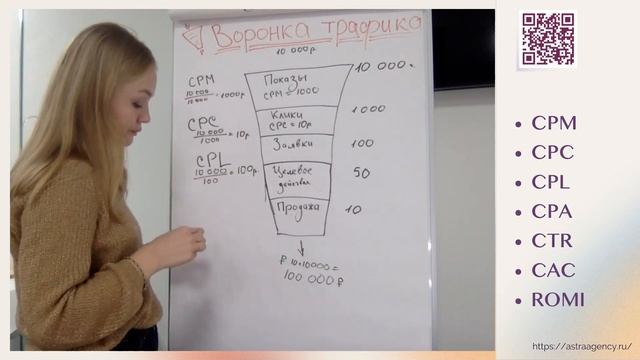 Воронка трафика
10 000 р
CPM
10 000
10 000
= 1000р
CPC
10 000
1000
= 10р
CPL
10 000
100
= 100р.
Показы
CPM = 1000
10 000
Клики
CPC = 10р
1 000
Заявки
100
Целевое
действие
50
Продажа
10
10×10000=
100 000 ₽
• CPM
• CPC
• CPL
• CPA
• CTR
• CAC
• ROMI
https://astraagency.ru/